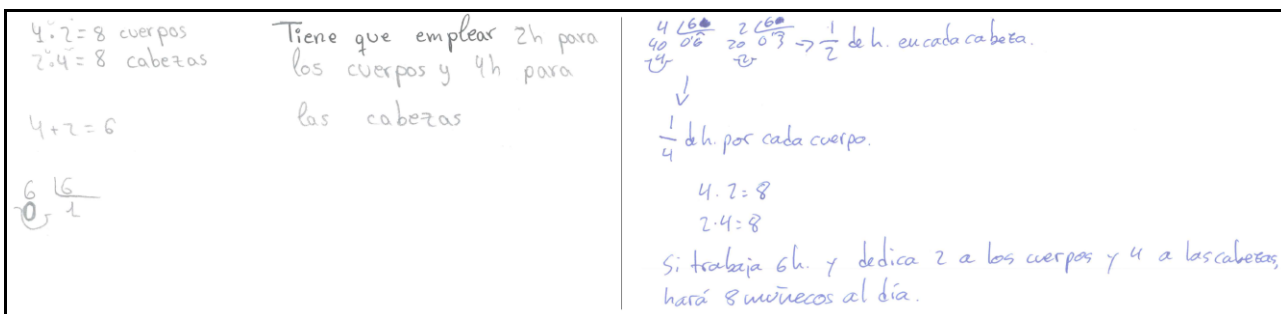 4 · 2 = 8 cuerpos
2 · 4 = 8 cabezas
4 + 2 = 6
6 6
0 1
Tiene que emplear 2h para
los cuerpos y 4h para
las cabezas
4 6 2 6
40 0'6 20 0'3 -> 1/2 de h. en cada cabeza.
4 2
1/4 de h. por cada cuerpo.
4 · 2 = 8
2 · 4 = 8
Si trabaja 6h. y dedica 2 a los cuerpos y 4 a las cabezas,
hará 8 muñecos al día.